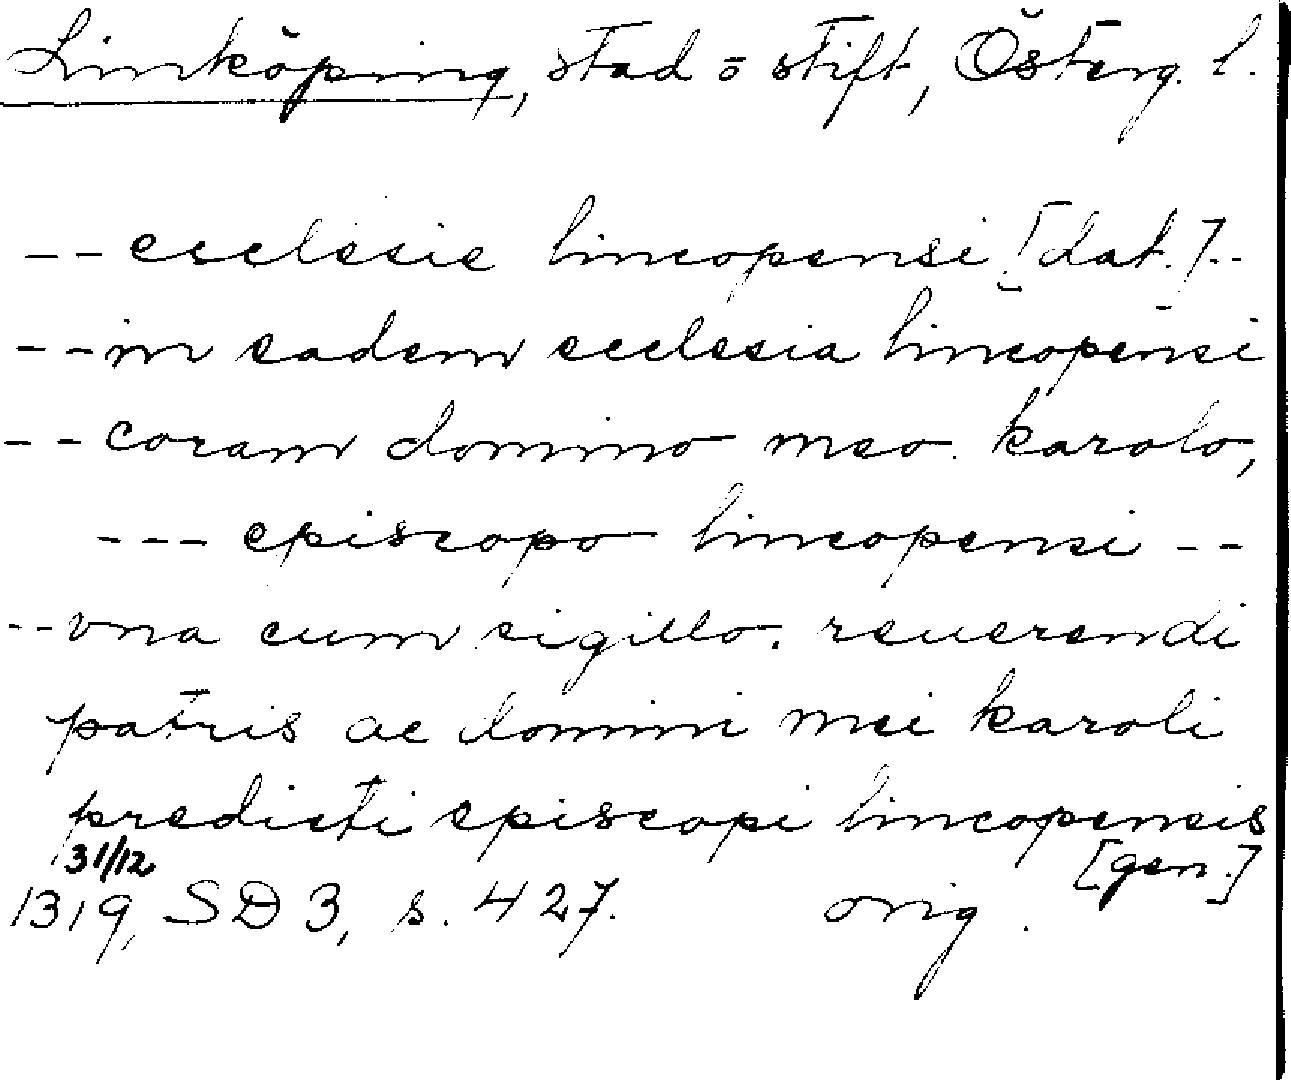 Linköping, stad o stift, Österg. l.
-- ecclesie lincopensi [dat.] --
-- in eadem ecclesia lincopensi
-- coram domino meo karolo,
--- episcopo lincopensi --
-- vna cum sigillo. reuerendi
patris ac domini mei karoli
predicti episcopi lincopensis
[gen.]
31/12
1319, SD 3, s. 427. orig.